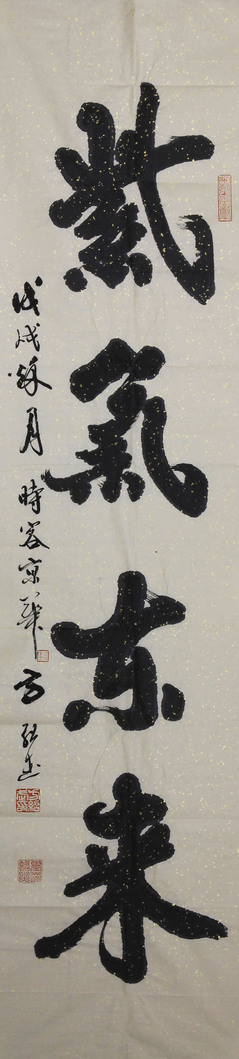 紫氣东来
戊戌秋月時客京華方